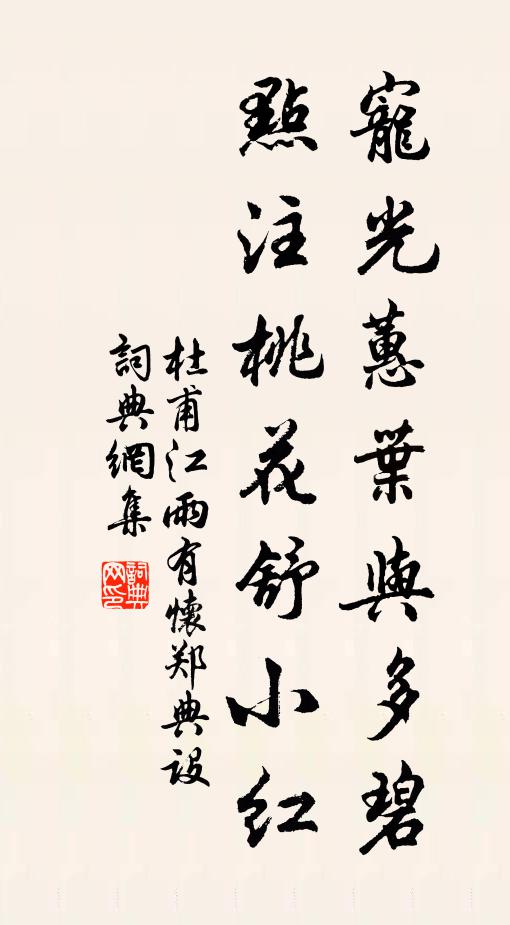 寵光蕙葉與多碧
點注桃花舒小红
杜甫江雨有懷郑典设
詞典網集
詞典网印